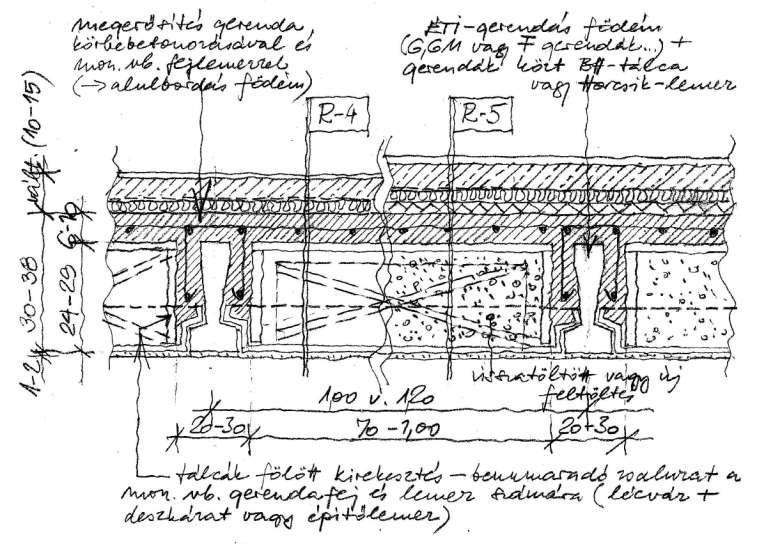 megerősítés gerenda
körbebetonozásával és
mon. vb. fejlemezzel
(→ alulbordás födém)
ÉTI-gerendás födém
(G, GM vagy F gerendák...) +
gerendák közt BH-tálca
vagy Horcsik-lemez
R-4
R-5
vált. (10-15)
30-38
1-2
6-10
24-29
visszatöltött vagy új
feltöltés
100 v. 120
20-30
70-1,00
20-30
tálcák fölött kirekesztés - bennmaradó zsaluzat a
mon. vb. gerendafej és lemez számára (lécváz +
deszkázat vagy építőlemez)